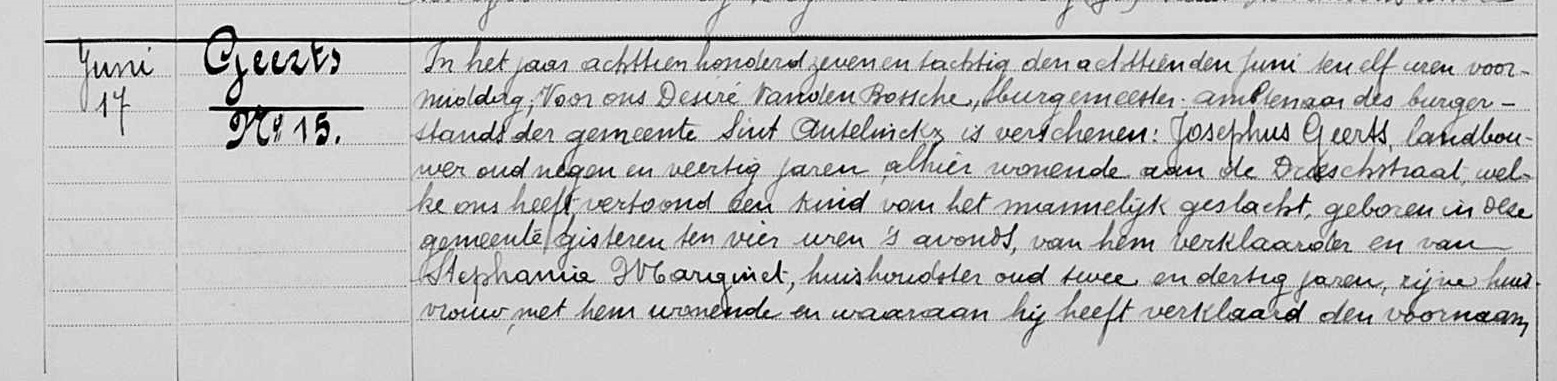 Juni
17
Geerts
No 15.
In het jaar achttien honderd zeven en tachtig den achttienden Juni ten elf uren voor-
middag, Voor ons Desiré Vanden Bossche, burgemeester ambtenaar des burger-
stands der gemeente Sint Antelinckx is verschenen: Josephus Geerts, landbou-
wer oud negen en veertig jaren alhier wonende aan de Drieschstraat, wel-
ke ons heeft vertoond een kind van het mannelijk geslacht, geboren in deze
gemeente gisteren ten vier uren 's avonds, van hem verklaarder en van
Stephania huishoudster oud twee en dertig jaren, zijne huis-
vrouw, met hem wonende en waaraan hij heeft verklaard den voornaam